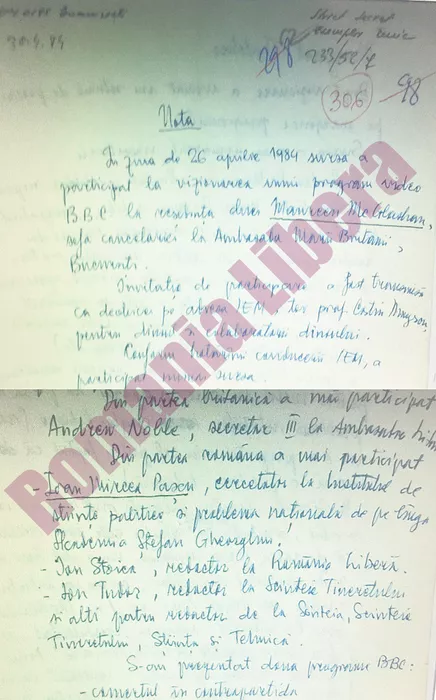 30.4.84
Strict secret
exemplar unic
298
233/SC/7
306
98
Nota
În ziua de 26 aprilie 1984 sursa a
participat la vizionarea unui program video
B.B.C la reședința dnei Maureen McGlashan,
șefa cancelariei la Ambasada Marii Britanii,
București.
Invitația de participare a fost transmisă
ca deobicei pe adresa IEM, tov prof. Costin
pentru dînsul și colaboratorii dînsului.
Conform hotărîrii conducerii IEM, a
participat numai sursa.
Din partea britanică a mai participat
Andrew Noble, secretar III la Ambasada
Din partea română a mai participat
- Ioan Mircea Pașcu, cercetător la Institutul de
științe politice și problema națională de pe lîngă
Academia Ștefan Gheorghiu.
- Ian Stoica, redactor la România Liberă.
- Ion Tudor, redactor la Scînteia Tineretului
și alți patru redactori de la Scînteia, Scînteia
Tineretului, Știință și Tehnică.
S-au prezentat două programe BBC:
- comerțul în contrapartidă
Romania Libera